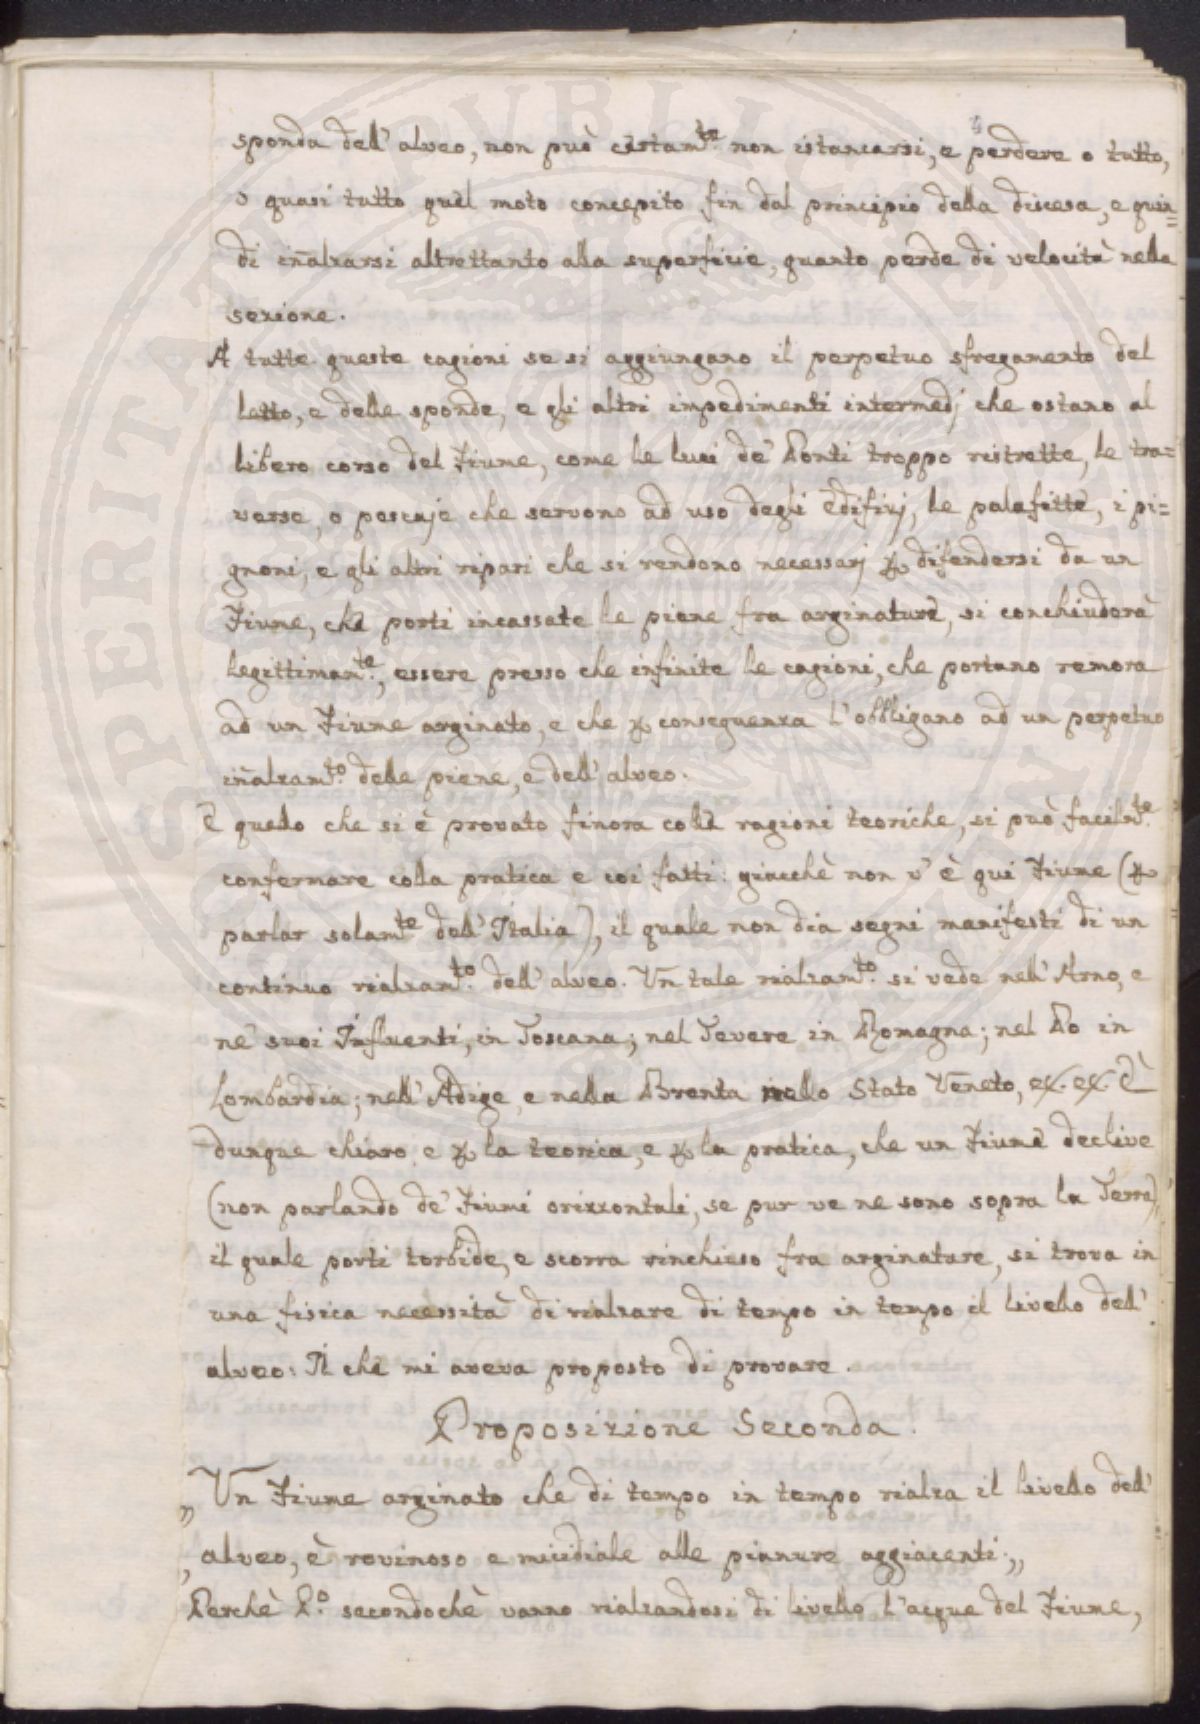 4
sponda dell' alveo, non può certam.te non istancarsi, e perdere o tutto,
o quasi tutto quel moto concepito fin dal principio della discesa, e quin=
di inalzarsi altrettanto alla superficie, quanto perde di velocità nella
sezione.
A tutte queste cagioni se si aggiungano il perpetuo sfregamento del
letto, e delle sponde, e gli altri impedimenti intermedj che ostano al
libero corso del Fiume, come le luci de' Ponti troppo ristrette, le tra=
verse, o pescaje che servono ad uso degli Edifizj, le palafitte, i pi=
gnoni, e gli altri ripari che si rendono necessarj p difendersi da un
Fiume, che porti incassate le piene fra arginature, si conchiuderà
legittiman.te, essere presso che infinite le cagioni, che portano remora
ad un Fiume arginato, e che p conseguenza l'obbligano ad un perpetuo
inalzam.to delle piene, e dell' alveo.
E quello che si è provato finora colle ragioni teoriche, si può facilm.te
confermare colla pratica e coi fatti: giacchè non v' è qui Fiume (p
parlar solam.te dell' Italia), il quale non dia segni manifesti di un
continuo rialzam.to dell' alveo. Un tale rialzam.to si vede nell' Arno, e
ne' suoi Influenti, in Toscana; nel Tevere in Romagna; nel Po in
Lombardia; nell' Adige, e nella Brenta nello Stato Veneto, ex. ex. È
dunque chiaro e p la teorica, e p la pratica, che un Fiume declive
(non parlando de' Fiumi orizzontali, se pur ve ne sono sopra la Terra),
il quale porti torbide, e scorra rinchiuso fra arginature, si trova in
una fisica necessità di rialzare di tempo in tempo il livello dell'
alveo: Il che mi aveva proposto di provare.
Proposizione Seconda.
„ Un Fiume arginato che di tempo in tempo rialza il livello dell'
„ alveo, è rovinoso e micidiale alle pianure aggiacenti;„
Perchè P.o secondochè vanno rialzandosi di livello l'acque del Fiume,
SPERITATI PVBLICAE